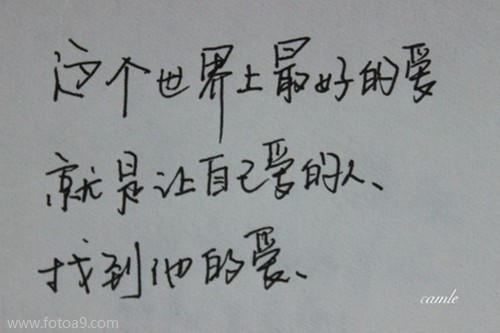 这个世界上最好的爱
就是让自己爱的人、
找到他的爱、
camle
www.fotoa9.com